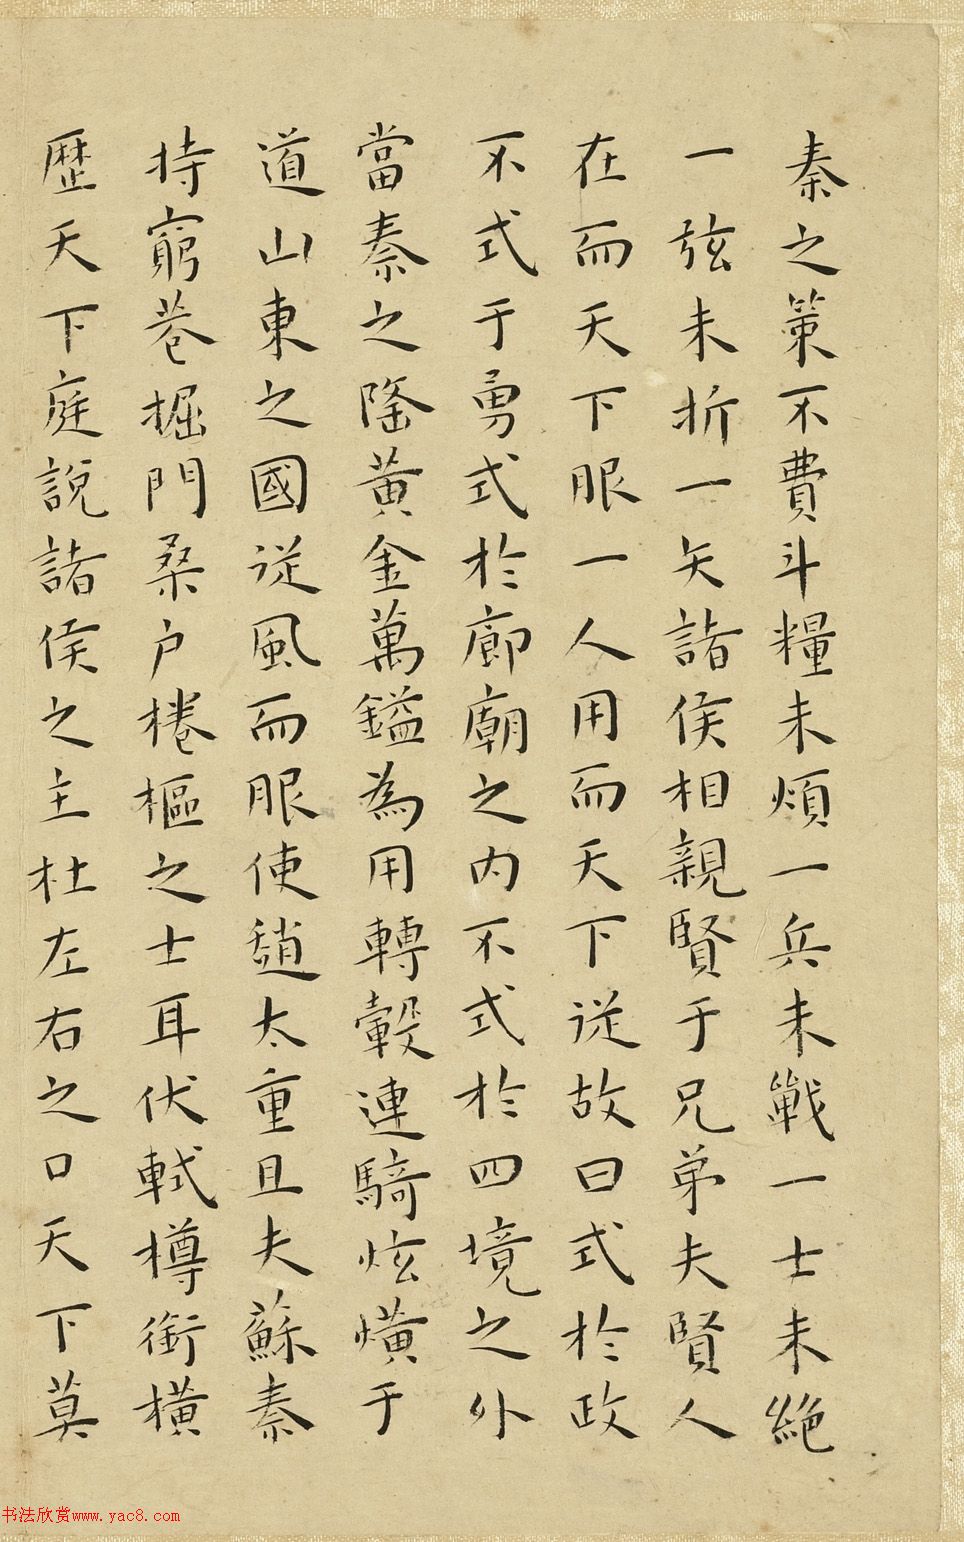 秦之策不費斗糧未煩一兵未戰一士未絶
一弦未折一矢諸侯相親賢于兄弟夫賢人
在而天下服一人用而天下從故曰式於政
不式于勇式於廊廟之内不式於四境之外
當秦之隆黄金萬鎰為用轉轂連騎炫熿于
道山東之國從風而服使趙太重且夫蘇秦
持窮巷掘門桑户棬樞之士耳伏軾樽銜橫
歷天下庭說諸侯之主杜左右之口天下莫
书法欣赏www.yac8.com